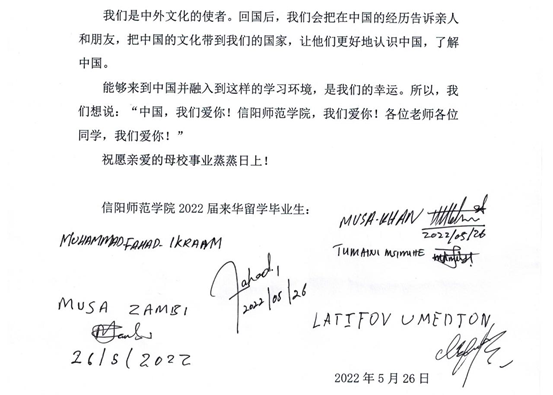 我们是中外文化的使者。回国后，我们会把在中国的经历告诉亲人
和朋友，把中国的文化带到我们的国家，让他们更好地认识中国，了解
中国。
能够来到中国并融入到这样的学习环境，是我们的幸运。所以，我
们想说：“中国，我们爱你！信阳师范学院，我们爱你！各位老师各位
同学，我们爱你！”
祝愿亲爱的母校事业蒸蒸日上！
信阳师范学院 2022 届来华留学毕业生：
MUSA-KHAN
2022/05/26
MUHAMMAD FAHAD IKRAAM
TUMAINI
Fahad
2022/05/26
MUSA ZAMBI
26/5/2022
LATIFOV UMEDJON
2022 年 5 月 26 日